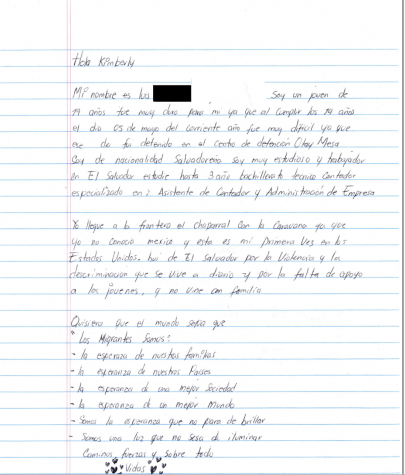 Hola Kimberly
Mi nombre es Luis Soy un joven de
19 años fue muy duro para mi ya que al cumplir los 19 años
el dia 05 de mayo del corriente año fue muy dificil ya que
ese dia fui detenido en el centro de detención Otay Mesa
Soy de nacionalidad Salvadoreño soy muy estudioso y trabajador
en El Salvador estudie hasta 3 año bachillerato tecnico Contador
especializado en: Asistente de Contador y Administración de Empresa
Yo llegue a la frontera el chaparral con la Caravana ya que
yo no conocia mexico y esta es mi primera Vez en los
Estados Unidos. hui de El Salvador por la Violencia y la
descriminacion que se vive a diario y por la falta de apoyo
a los jóvenes, y no vine con familia
Quisiera que el mundo sepa que
"Los Migrantes Somos":
- la esperanza de nuestras familias
- la esperanza de nuestros Paises
- la esperanza de una mejor Sociedad
- la esperanza de un mejor Mundo
- Somos la esperanza que no para de brillar
- Somos una luz que no sesa de iluminar
Caminos, fuerzas y sobre todo
Vidas